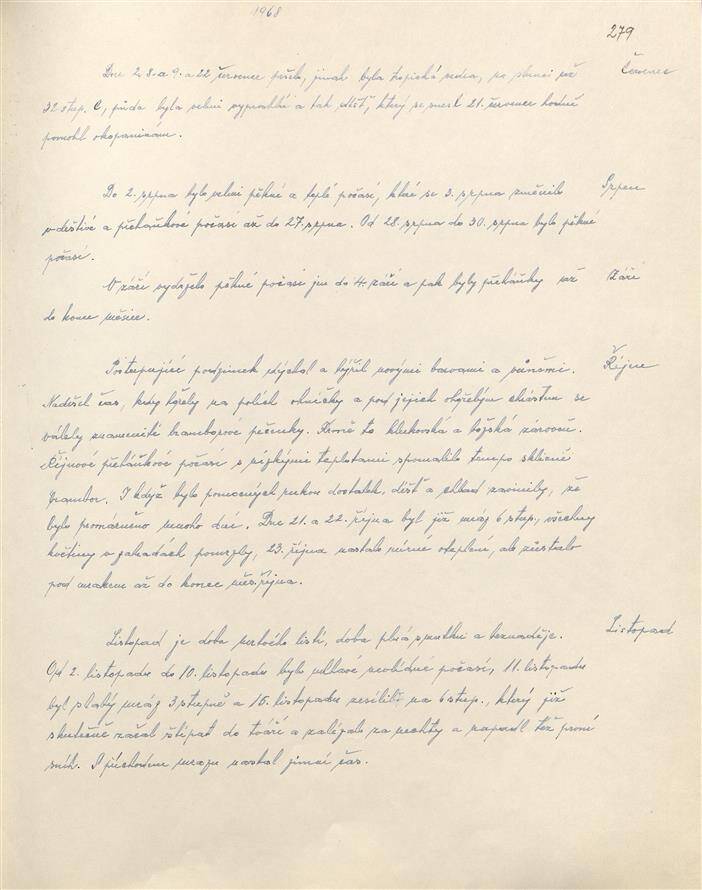 1968
279
Dne 2. 8. a 9. a 22 července pršelo, jinak byla tropická vedra, na slunci až
Červenec
32 stup. C, půda byla velmi vyprahlá a tak déšť, který se snesl 21. července hodně
pomohl okopaninám.
Do 2. srpna bylo velmi pěkné a teplé počasí, které se 3. srpna změnilo
Srpen
v deštivé a přeháňkové počasí až do 27. srpna. Od 28. srpna do 30. srpna bylo pěkné
počasí.
V září vydrželo pěkné počasí jen do 4. září a pak byly přeháňky až
Září
do konce měsíce.
Postupující podzimek dýchal a hýřil novými barvami a vůněmi.
Říjen
Nadešel čas, kdy hořely na polích ohníčky a pod jejich ohřelým chrástem se
válely znamenité bramborové pečenky. Kromě to klukovská a božská zároveň.
Říjnové přeháňkové počasí s nízkými teplotami zpomalilo tempo sklizně
brambor. I když bylo pomocných rukou dostatek, déšť a chlad zavinily, že
bylo promarněno mnoho dní. Dne 21. a 22. října byl již mráz 6 stup., všechny
květiny v zahradách pomrzly, 23. října nastalo mírné oteplení, ale zůstalo
pod mrakem až do konce měs. října.
Listopad je doba mrtvého listí, doba plná smutku a beznaděje.
Listopad
Od 2. listopadu do 10. listopadu bylo mlhavé nevlídné počasí, 11. listopadu
byl slabý mráz 3 stupně a 15. listopadu zesílil na 6 stup., který již
skutečně začal štípat do tváří a zalézalo za nechty a napadl též první
sníh. S příchodem mrazu nastal zimní čas.